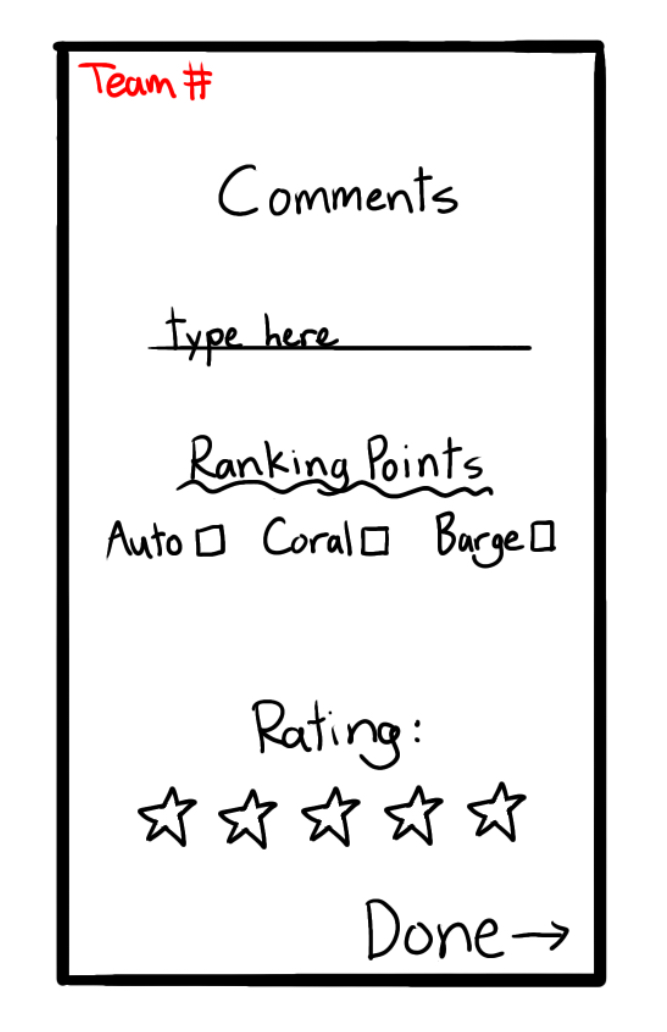 Team #
Comments
type here
Ranking Points
Auto Coral Barge
Rating:
Done →